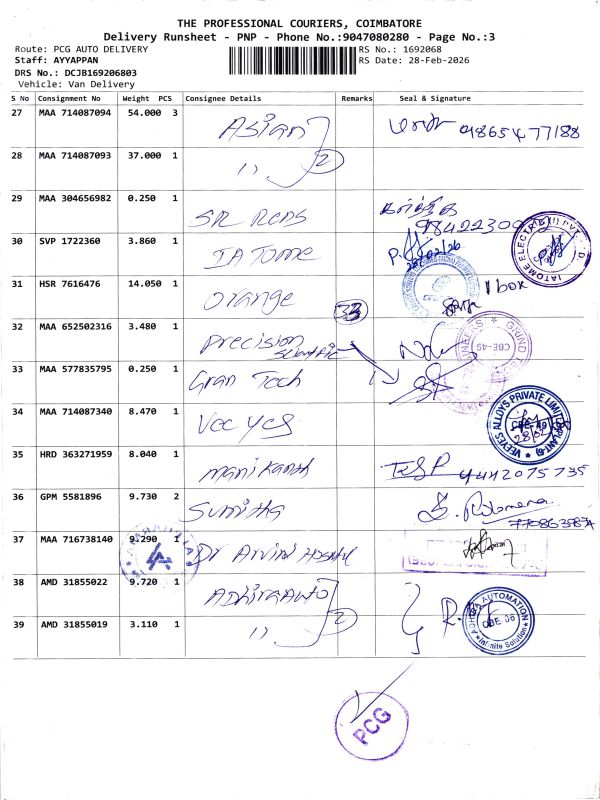 THE PROFESSIONAL COURIERS, COIMBATORE
Delivery Runsheet - PNP - Phone No.:9047080280 - Page No.:3
Route: PCG AUTO DELIVERY
RS No.: 1692068
Staff: AYYAPPAN
RS Date: 28-Feb-2026
DRS No.: DCJB169206803
Vehicle: Van Delivery
S No Consignment No Weight PCS Consignee Details Remarks Seal & Signature
27 MAA 714087094 54.000 3 Asian 9865477188
28 MAA 714087093 37.000 1 11 2
29 MAA 304656982 0.250 1 SR
30 SVP 1722360 3.860 1 28/02/26 IATOME ELECTRIC (I) PVT
31 HSR 7616476 14.050 1 Orange 1 box
32 MAA 652502316 3.480 1 Precision Scientific 33
33 MAA 577835795 0.250 1 Gran Tech CBE-49
34 MAA 714087340 8.470 1 VEEYES ALLOYS PRIVATE LIMITED
35 HRD 363271959 8.040 1 Manikanth 9442075735
36 GPM 5581896 9.730 2 Sumitha
37 MAA 716738140 9.290 1 Dr Arvind Hospital
38 AMD 31855022 9.720 1 Adhiraauto 2 AUTOMATION CBE 06 Infinite Solution
39 AMD 31855019 3.110 1 11
PCG